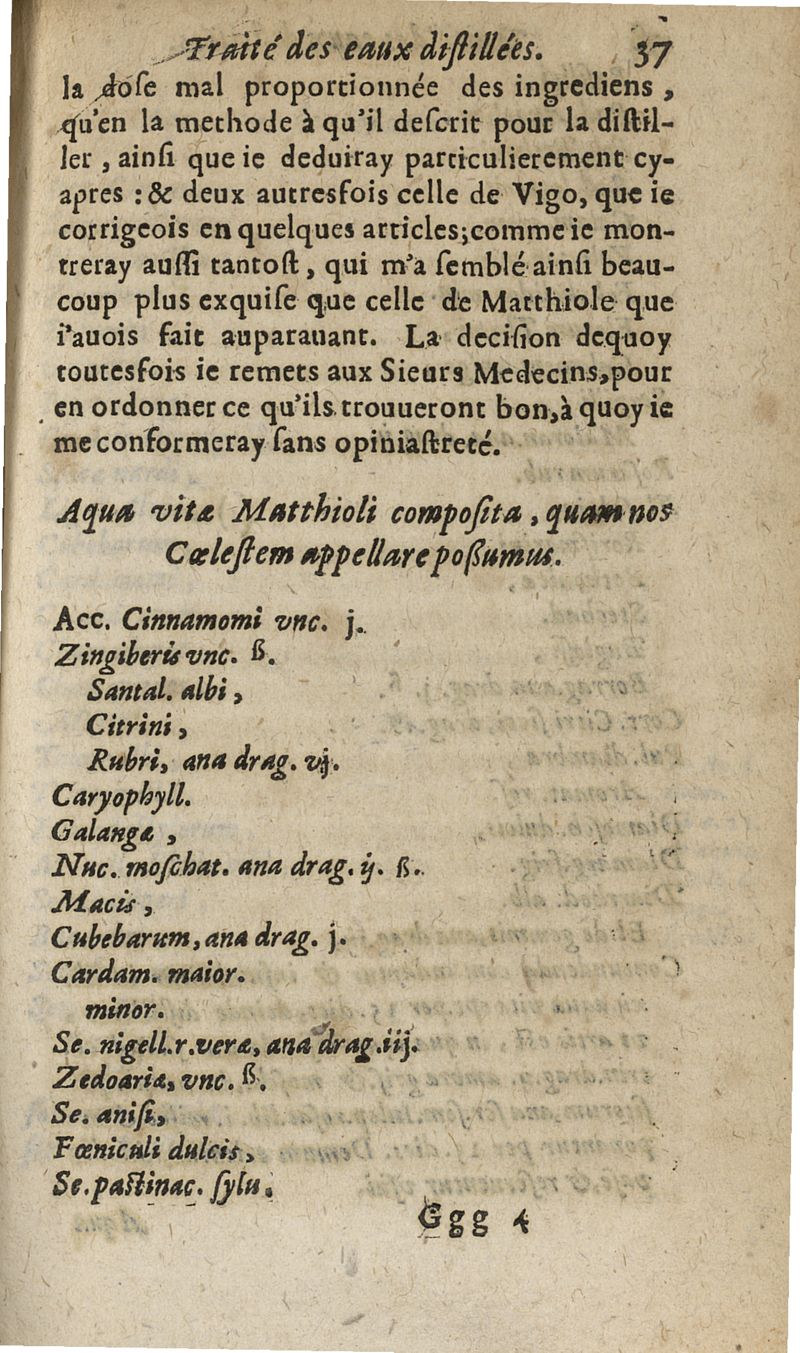 Traité des eaux diſtillées. 37
la doſe mal proportionnée des ingrediens,
qu'en la methode à qu'il deſcrit pour la diſtil-
ler, ainſi que ie deduiray particulierement cy-
apres : & deux autresfois celle de Vigo, que ie
corrigeois en quelques articles; comme ie mon-
treray auſſi tantoſt, qui m'a ſemblé ainſi beau-
coup plus exquiſe que celle de Matthiole que
i'auois fait auparauant. La deciſion dequoy
toutesfois ie remets aux Sieurs Medecins, pour
en ordonner ce qu'ils trouueront bon, à quoy ie
me conformeray ſans opiniaſtreté.
Aqua vitæ Matthioli compoſita, quam nos
Cœleſtem appellare poßumus.
Acc. Cinnamomi vnc. j.
Zingiberis vnc. ß.
Santal. albi,
Citrini,
Rubri, ana drag. vj.
Caryophyll.
Galangæ,
Nuc. moſchat. ana drag. ij. ß.
Macis,
Cubebarum, ana drag. j.
Cardam. maior.
minor.
Se. nigell. r. veræ, ana drag. iij.
Zedoariæ, vnc. ß.
Se. aniſi,
Fœniculi dulcis,
Se. paſtinac. ſylu.
Ggg 4